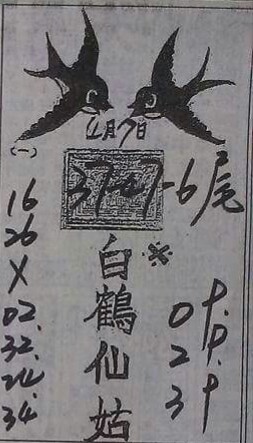 4月7日
(一)
37-47-6尾
16
26
X
02.
32.
24.
34.
白鶴仙姑
0
2
3